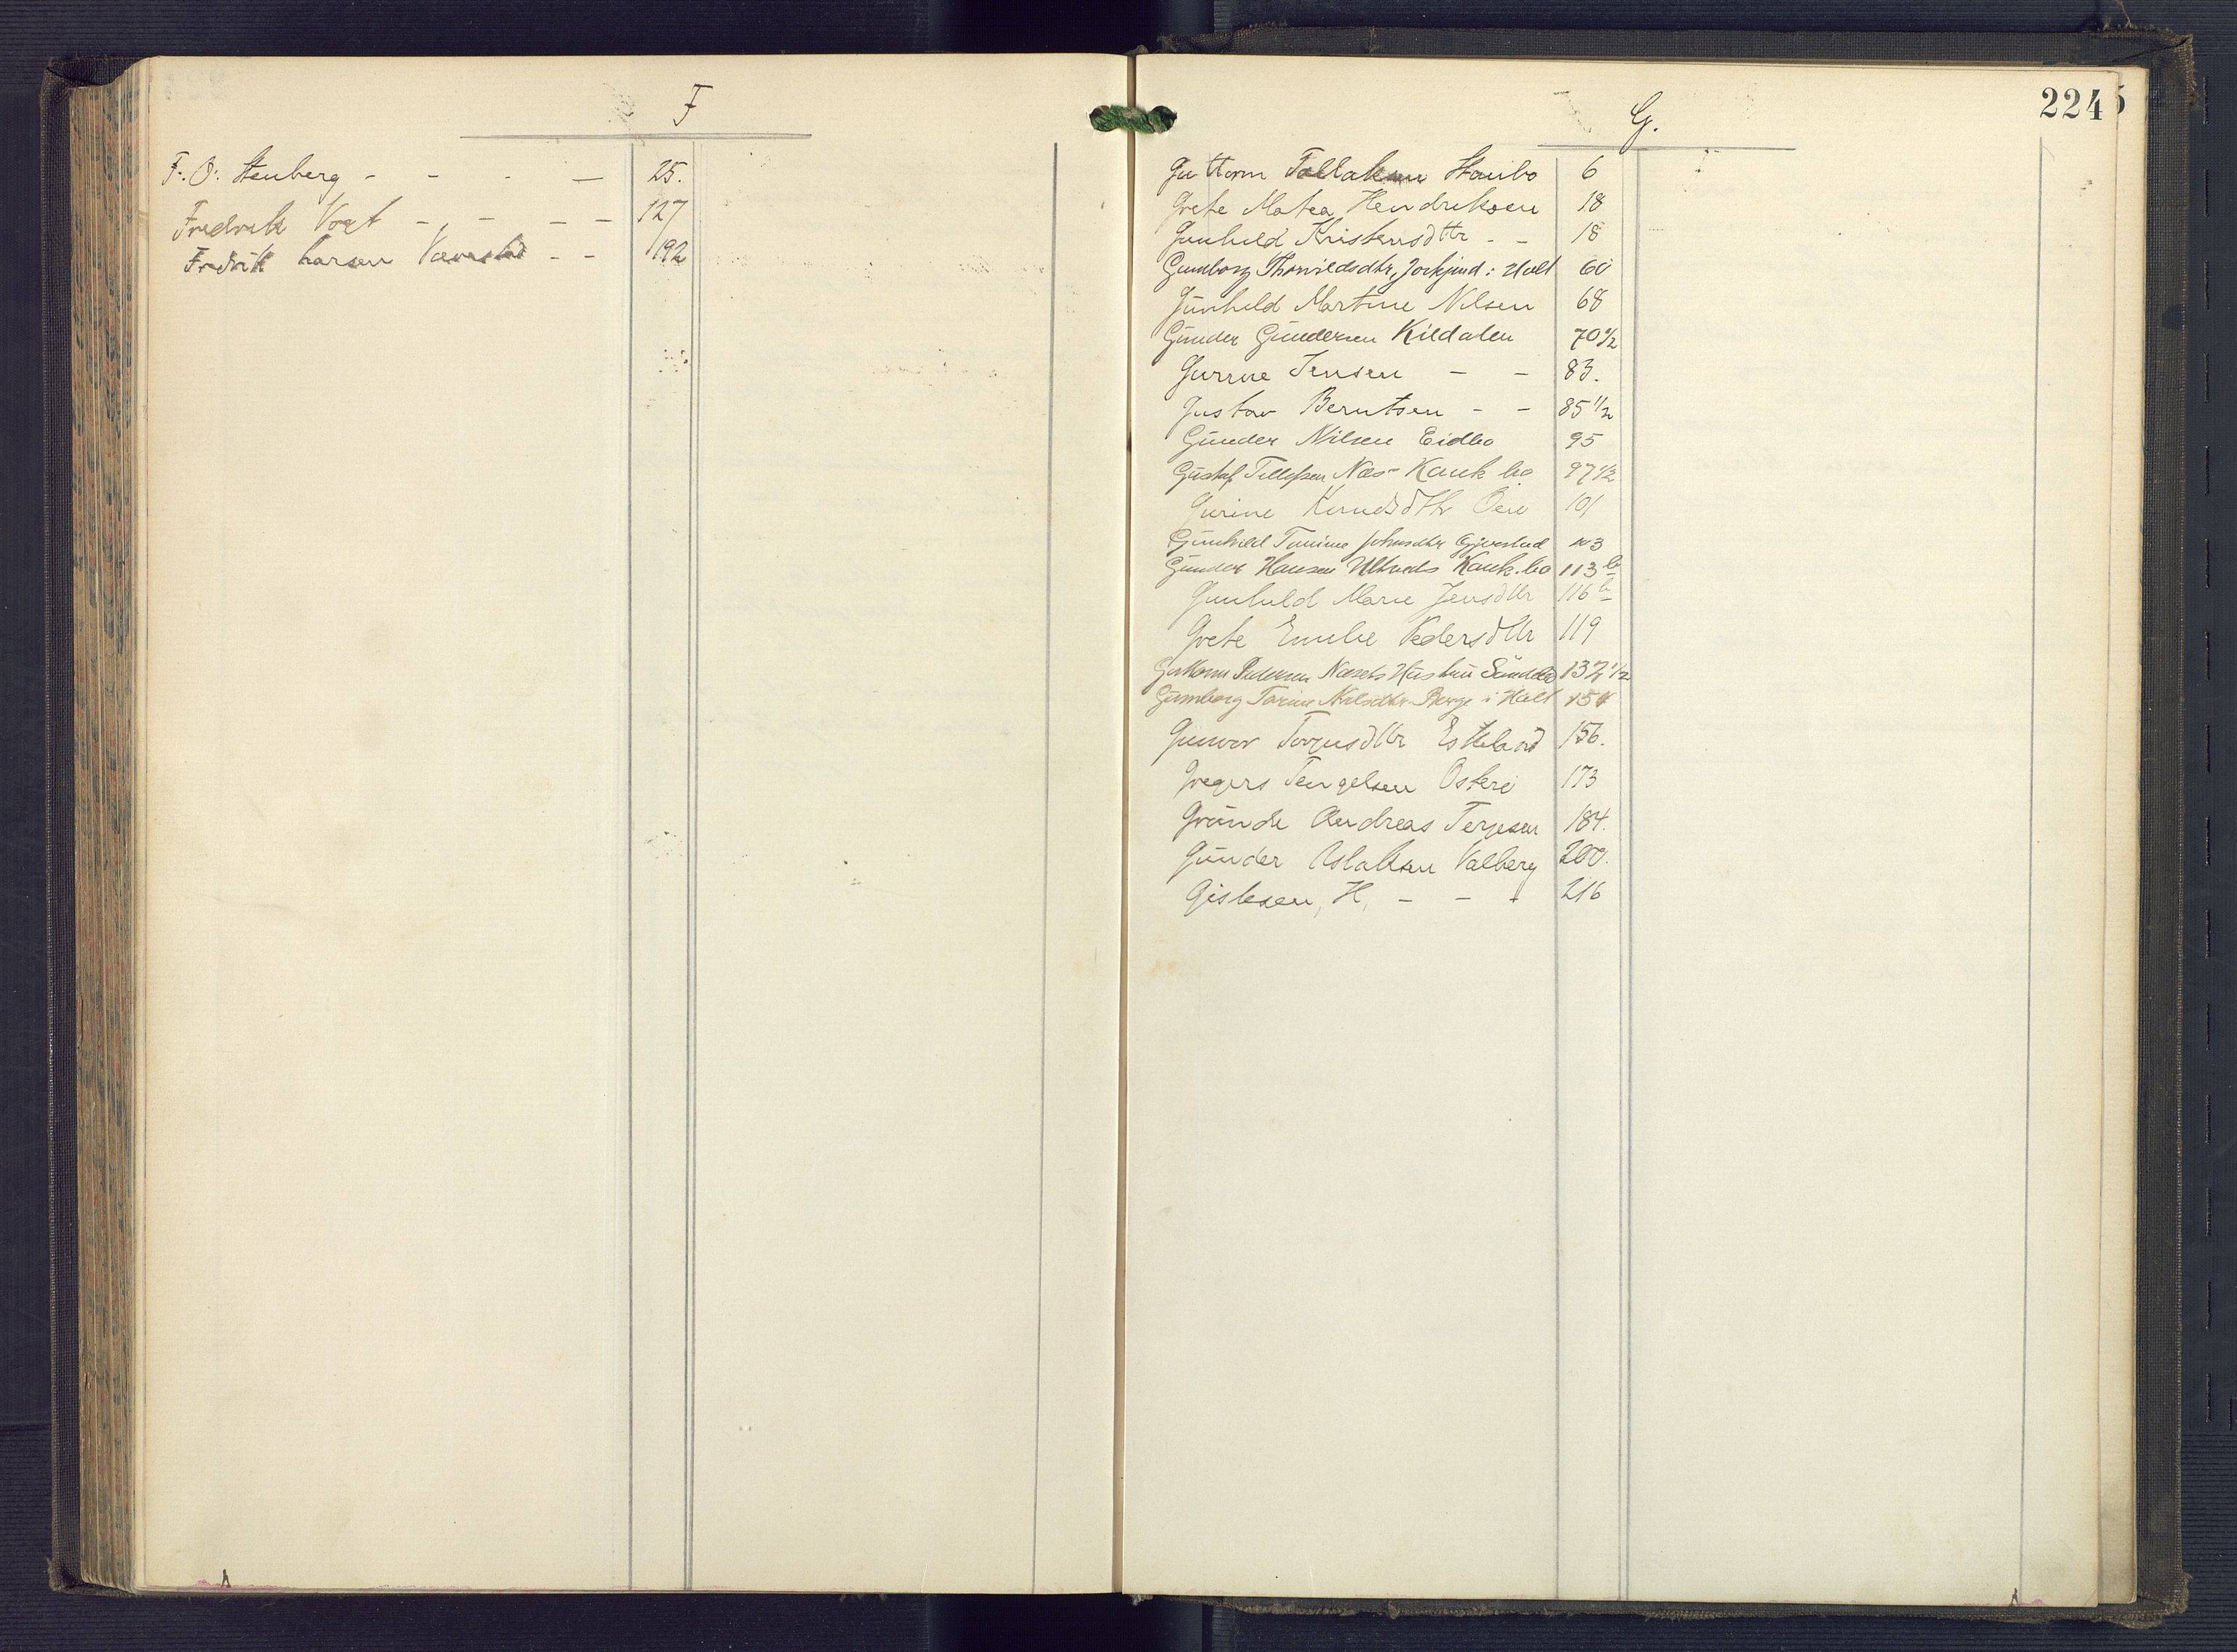 F
F. O. Stenberg - - - — 25.
Fredrik Vogt - - - - 127
Fredrik Larsen Vaverstad - - 192
224
G.
Guttorm Tallaksen Staubo 6
Grete Matea Hendriksen 18
Gunhild Kristensdttr - - 18
Gunborg Thorvildsdtr, i Holt 60
Gunhild Martine Nilsen 68
Gunder Gundersen Kildalen 70 1/2
Gurine Jensen - - 83.
Gustav Berntsen - - 85 1/2
Gunder Nilsen Eidbo 95
Gustaf Tellefsen Næs- Konk bo 97 1/2
Gurine Knudsdttr Øen 101
Gunhild Tomine Johnsdtr Gjerestad 103
Gunder Hansen Ultveds Konk. bo 113 b
Gunhild Marie Jensdttr 116 b
Grete Emilie Pedersdttr 119
Guttorm Pedersen Næsets Hustru Søndeled 137 1/2
Gunborg Torine Nilsdtr Berge i Holt 154
Gunvor Torjusdttr Eskeland 156.
Gregers Tengelsen Østerø 173
Grunde Andreas Terjesen 184.
Gunder Aslaksen Valberg 200.
Gislesen, H, - - - 216